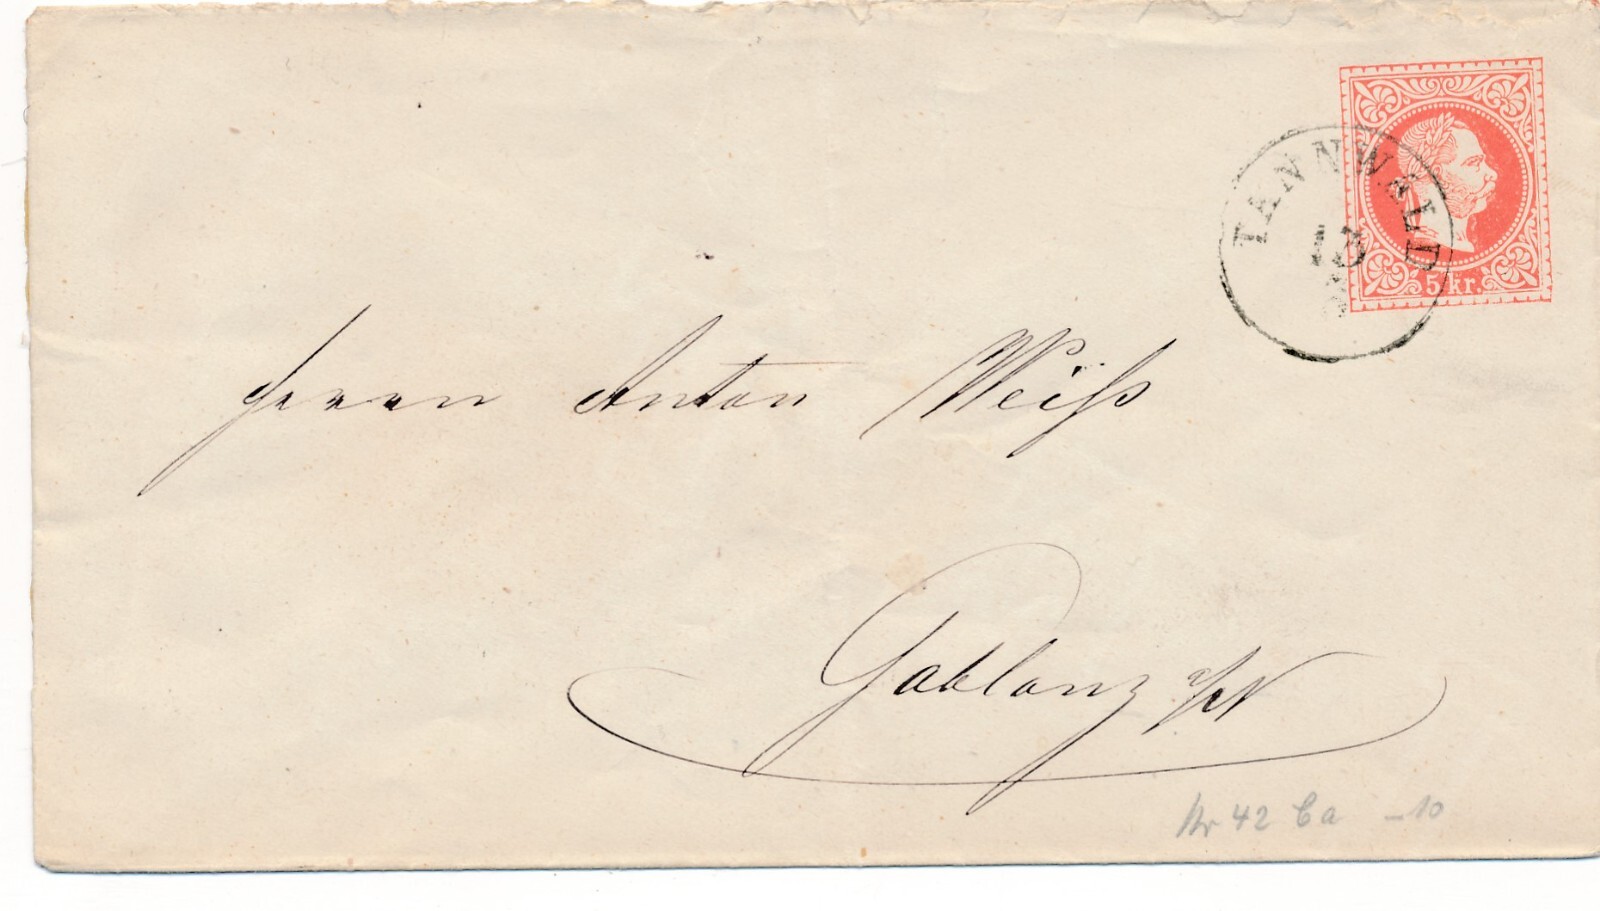 TANNWALD
5 kr.
Herrn Anton Weiß
Gablonz a/N
Nr 42 Ca -10